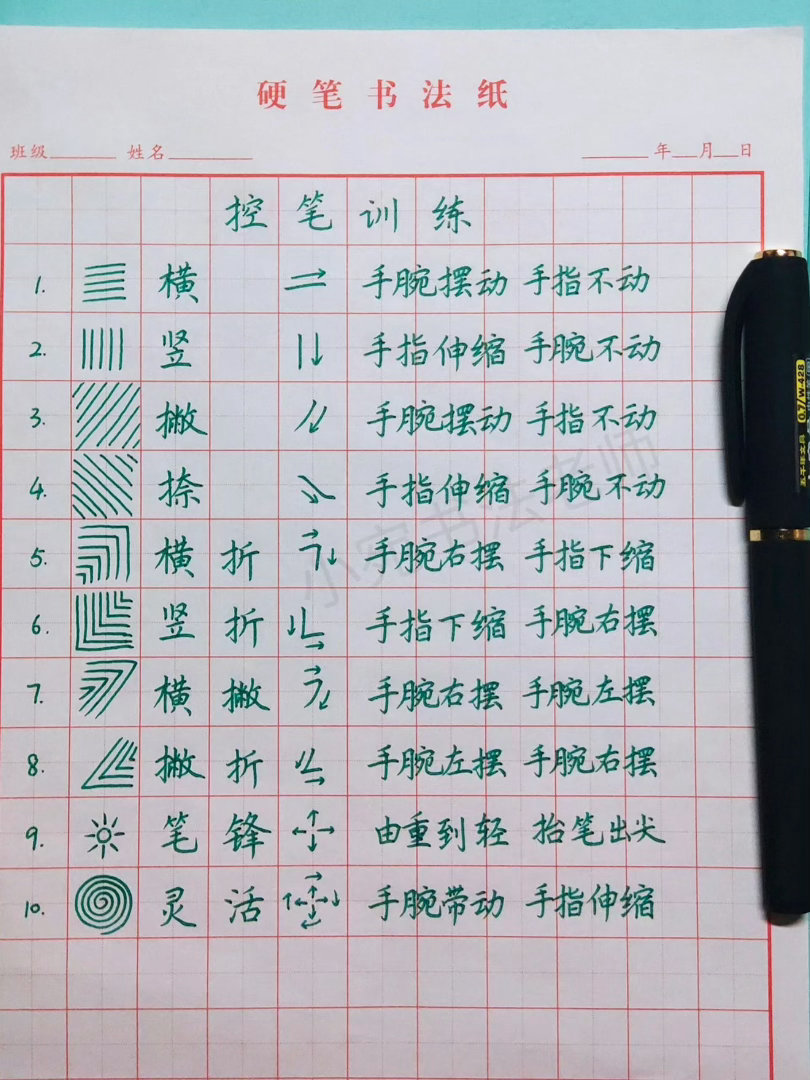 硬笔书法纸
班级 姓名 年 月 日
控笔训练
1. 横 手腕摆动 手指不动
2. 竖 手指伸缩 手腕不动
3. 撇 手腕摆动 手指不动
4. 捺 手指伸缩 手腕不动
5. 横折 手腕右摆 手指下缩
6. 竖折 手指下缩 手腕右摆
7. 横撇 手腕右摆 手腕左摆
8. 撇折 手腕左摆 手腕右摆
9. 笔锋 由重到轻 抬笔出尖
10. 灵活 手腕带动 手指伸缩
0.7/W-428